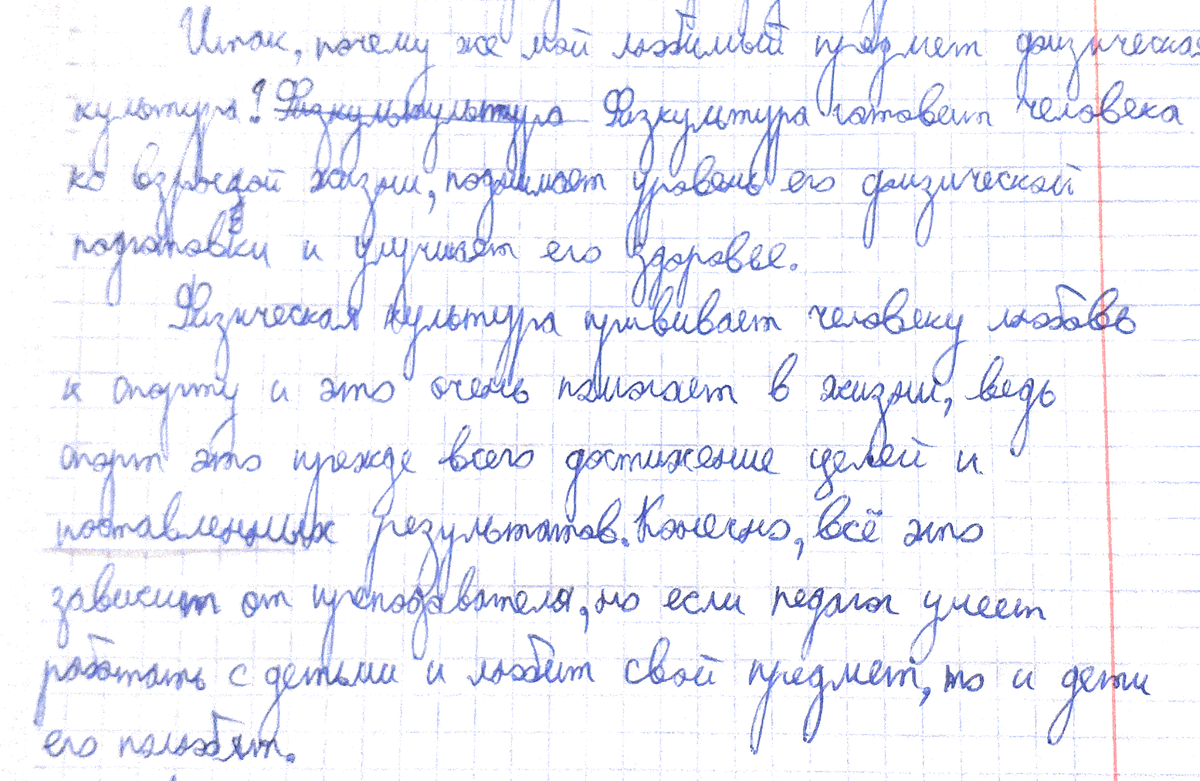 Итак, почему же мой любимый предмет физическая
культура? Физкультультура Физкультура готовит человека
ко взрослой жизни, поднимает уровень его физической
подготовки и улучшает его здоровье.
Физическая культура прививает человеку любовь
к спорту и это очень помогает в жизни, ведь
спорт это прежде всего достижение целей и
поставленных результатов. Конечно, всё это
зависит от преподавателя, но если педагог умеет
работать с детьми и любит свой предмет, то и дети
его полюбят.